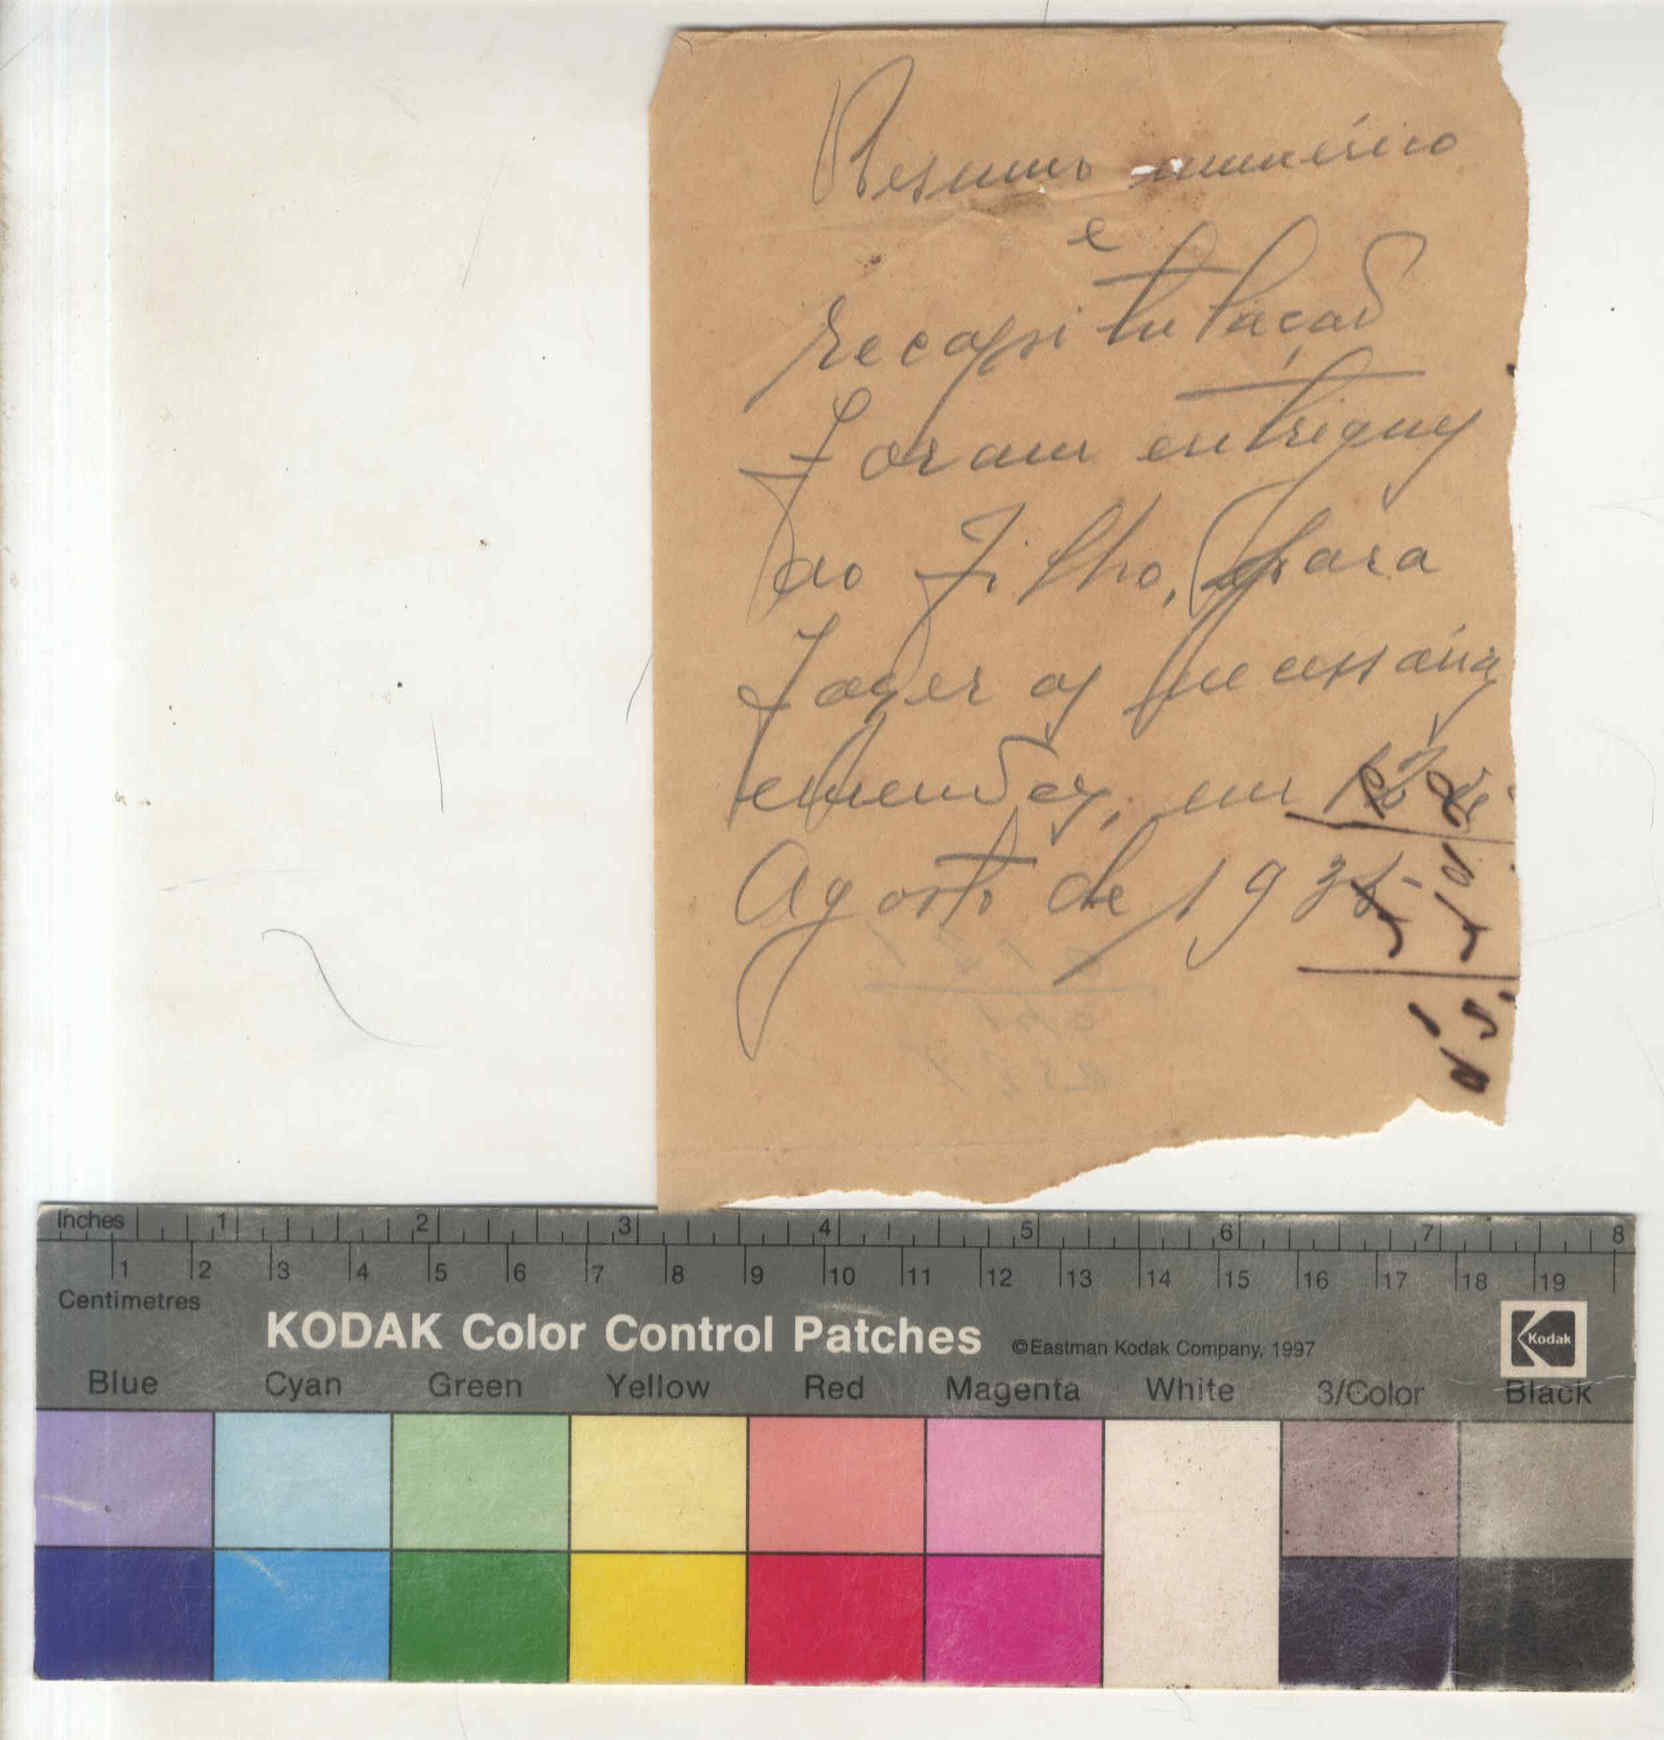 Resumo numérico
e
recapitulação
Foram entregues
ao Filho, para
Fazer as necessárias
emendas, em de
Agosto de 193
Inches 1 2 3 4 5 6 7 8
1 2 3 4 5 6 7 8 9 10 11 12 13 14 15 16 17 18 19
Centimetres
KODAK Color Control Patches ©Eastman Kodak Company, 1997 Kodak
Blue Cyan Green Yellow Red Magenta White 3/Color Black